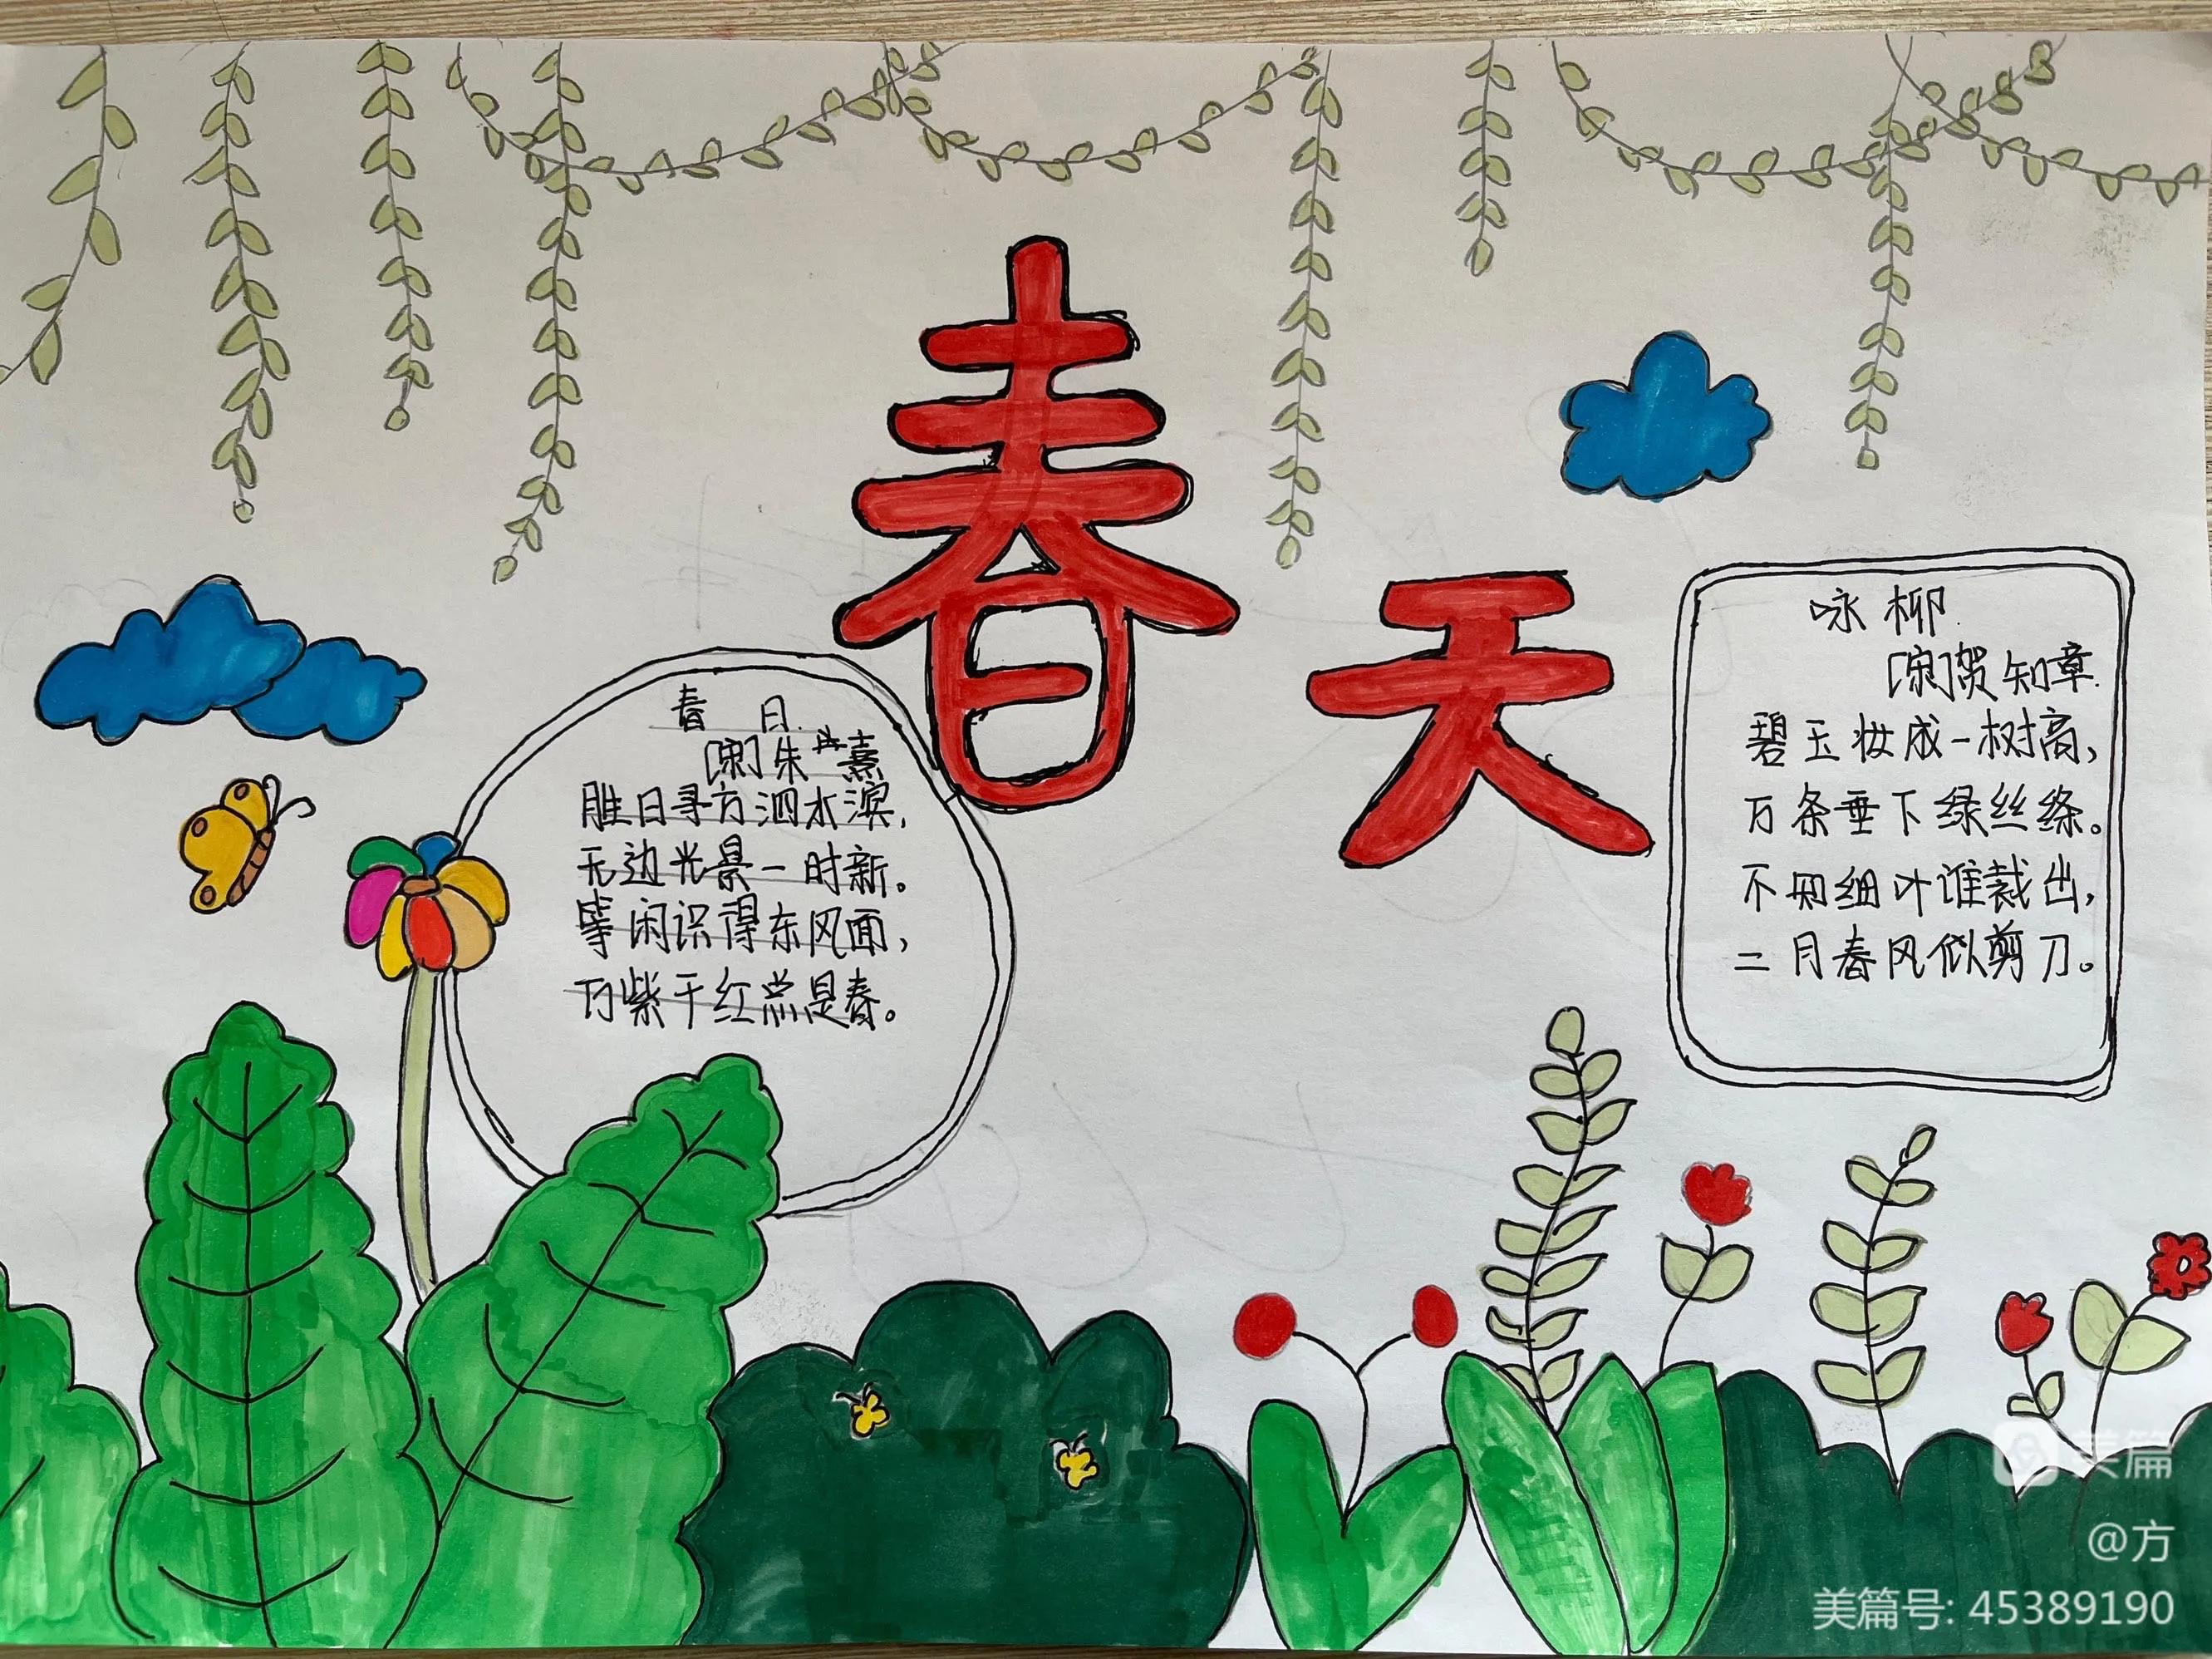 春天
春日
[宋]朱熹
胜日寻方泗水滨，
无边光景一时新。
等闲识得东风面，
万紫千红总是春。
咏柳
[宋]贺知章
碧玉妆成一树高，
万条垂下绿丝绦。
不知细叶谁裁出，
二月春风似剪刀。
美篇
@方
美篇号: 45389190